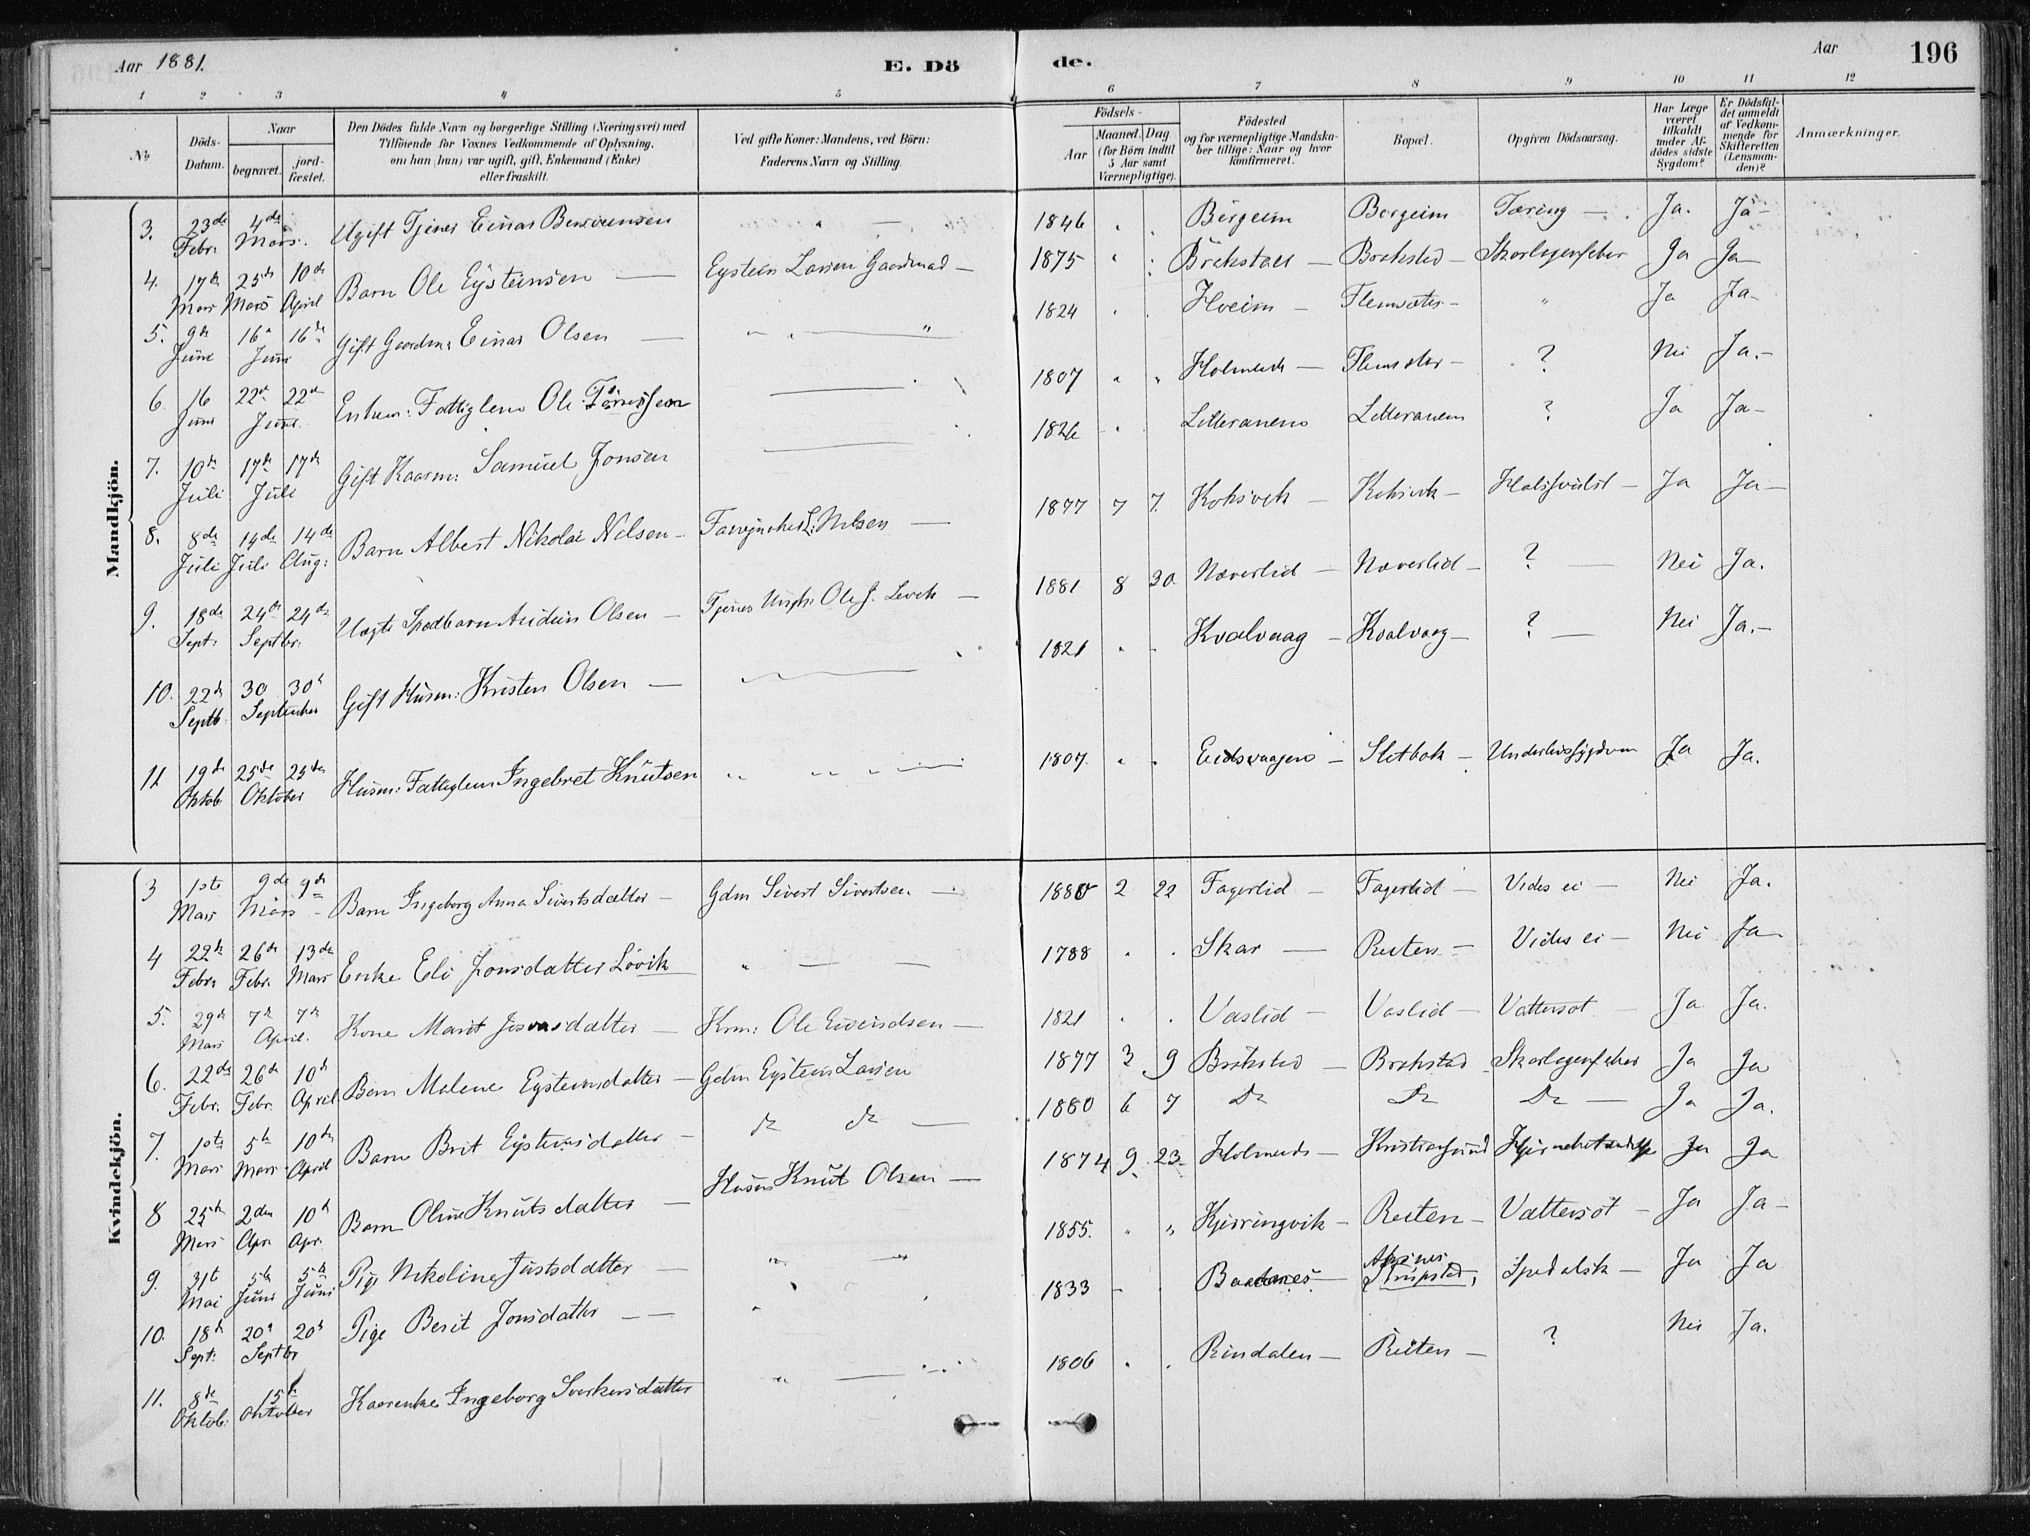 Aar 1881. E. Dö de. Aar 196
1 2 3 4 5 6 7 8 9 10 11 12
No
Döds-Datum.
Naar begravet. jord-fæstet.
Den Dödes fulde Navn og borgerlige Stilling (Næringsvei) med
Tilföiende for Voxnes Vedkommende af Oplysning,
om han (hun) var ugift, gift, Enkemand (Enke)
eller fraskilt.
Ved gifte Koner: Mandens, ved Börn:
Faderens Navn og Stilling.
Födsels-
Aar Maaned. Dag
(for Börn indtil 5 Aar samt Værnepligtige).
Födested
og for værnepligtige Mandska-
ber tillige: Naar og hvor
konfirmeret.
Bopæl.
Opgiven Dödsaarsag.
Har Læge været tilkaldt under Af-dödes sidste Sygdom?
Er Dödsfal-det anmeldt af Vedkom-mende for Skifteretten (Lensman-den)?
Anmærkninger.
Mandkjön.
3. 23de Febr. 4de Mars. Ugift Tjener Einar 1846 Bergeim Bergeim Tæring Ja. Ja
4. 17de Mars 25de Mars 10de April Barn Ole Eysteinsen Eystein Larsen Gaardmand 1875 Brekstad Brekstad Skarlagensfeber Ja Ja
5. 9de Juni 16 16de Juni Gift Gaardm: Einar Olsen 1824 Hveim Flemsæter " Ja Ja
6. 16 Juni 22de 22de Juni Enkem: Fattiglem Ole 1807 Flemsæter ? Nei Ja.
7. 10de Juli 17de 17de Juli Gift Kaarm: Samuel Jonsen 1826 ? Ja Ja
8. 8de Juli 14de Juli 14de Aug: Barn Albert Nikolai Nilsen L. Nilsen 1877 7 7. Halssvulst Ja Ja
9. 18de Sept. 24de 24de Septbr. Uægte Spædbarn Audun Olsen Tjener Ungk. Ole J. 1881 8 30 Næverlid Næverlid ? Nei Ja.
10. 22de Septb. 30 30te September Gift Husm: Kristen Olsen 1821 Kvalvaag Kvalvaag ? Nei Ja.
11 19de Oktob. 25de 25de Oktober Husm: Fattiglem Ingebret Knutsen 1807 Eidsvaagen Sletbak Underlivssygdom Ja Ja.
Kvindekjön.
3 1ste Mars 9de 9de Mars Barn Ingeborg Anna Sivertsdatter Gdm Sivert Sivertsen 1880 2 22 Fagerlid Fagerlid Vides ei Nei Ja.
4 22de Febr. 26de Febr. 13de Mars Enke Eli Jonsdatter Lövik 1788 Skar Reiten Vides ei Nei Ja
5. 29de Mars 7de 7de April. Kone Marit datter Krm: Ole Eivindsen 1821 Vaslid Vaslid Vattersot Ja Ja.
6. 22de Febr. 26de Febr. 10de April Barn Malene Eysteinsdatter Gdm Eystein Larsen 1877 3 9 Brekstad Brekstad Skarlagensfeber Ja Ja
7. 1ste Mars 5te Mars 10de April Barn Brit Eysteinsdatter Do Do 1880 6 7 Do Do Do Ja Ja.
8 25de Mars 2den Apr. 10de Apr. Barn Oline Knutsdatter Husm Knut Olsen 1874 9. 23 Kristiansund Ja Ja
9. 31te Mai 5te Juni 5te Juni Pige Nikoline Justsdatter 1855. Kjerringvik Reiten Vattersot Ja Ja
10. 18de Sept. 20de 20de Septbr Pige Berit Jonsdatter 1833 Spedalsk Ja Ja
11. 8de Oktob. 15de Oktober Kaarenke Ingeborg Sverkersdatter 1806 Rindalen Reiten ? Nei Ja.